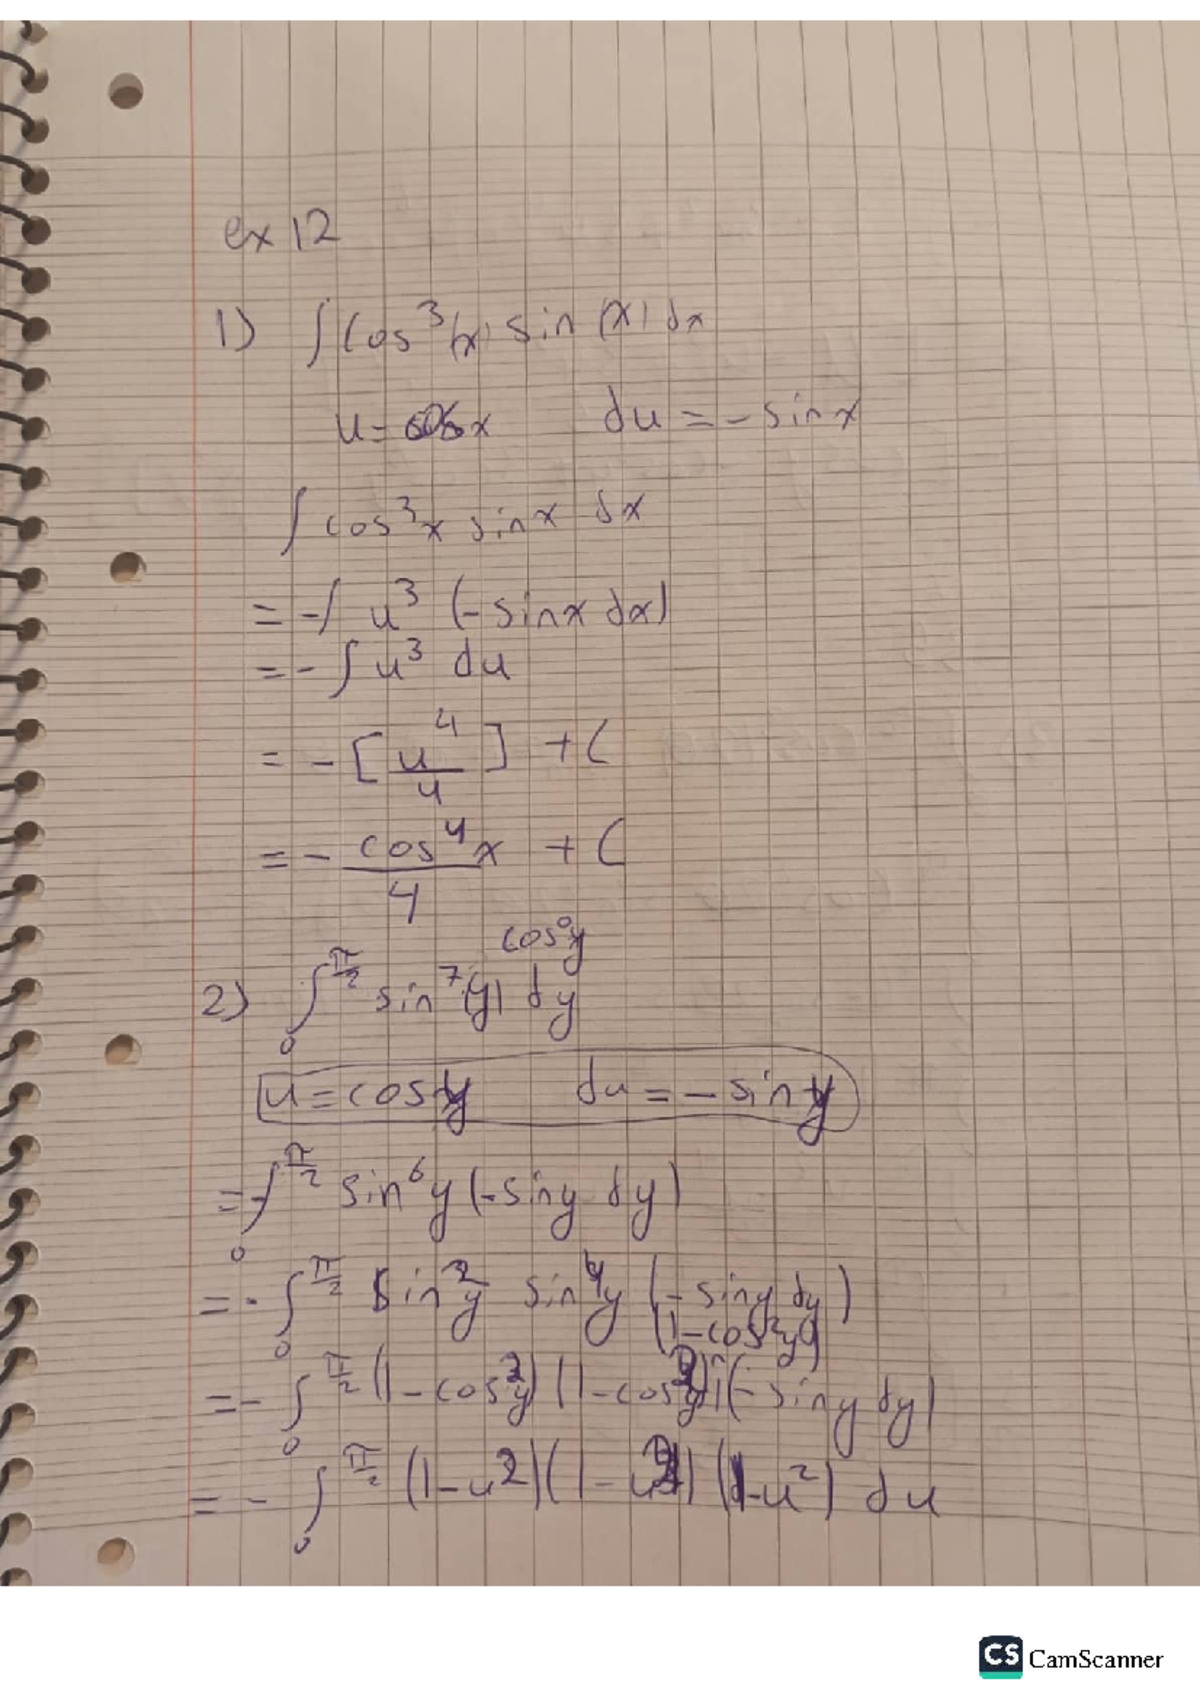 ex 12
1) ∫ cos³(x) sin(x) dx
u = cos x du = - sin x
∫ cos³x sin x dx
= -∫ u³ (-sin x dx)
= - ∫ u³ du
= - [u⁴/4] + C
= - cos⁴x/4 + C
cos⁰y
2) ∫₀^(π/2) sin⁷(y) dy
u = cos y du = - sin y
= -∫₀^(π/2) sin⁶y (-sin y dy)
= - ∫₀^(π/2) sin²y sin⁴y (- sin y dy)
(1-cos²y)
= - ∫₀^(π/2) (1-cos²y) (1-cos²y) (- sin y dy)
= - ∫₀^(π/2) (1-u²)(1-u²) (1-u²) du
CS CamScanner